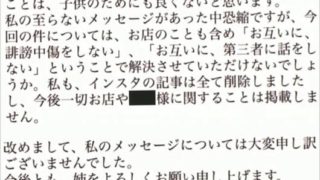 ことは、子供のためにも良くないと思います。
私の至らないメッセージがあった中恐縮ですが、今回
の件については、お店のことも含め「お互いに、
誹謗中傷をしない」、「お互いに、第三者に話をし
ない」ということで解決させていただけないでしょ
うか。私も、インスタの記事は全て削除しました
し、今後一切お店や 様に関することは掲載しま
せん。
改めまして、私のメッセージについては大変申し訳
ございませんでした。
今後とも、姉をよろしくお願い申し上げます。